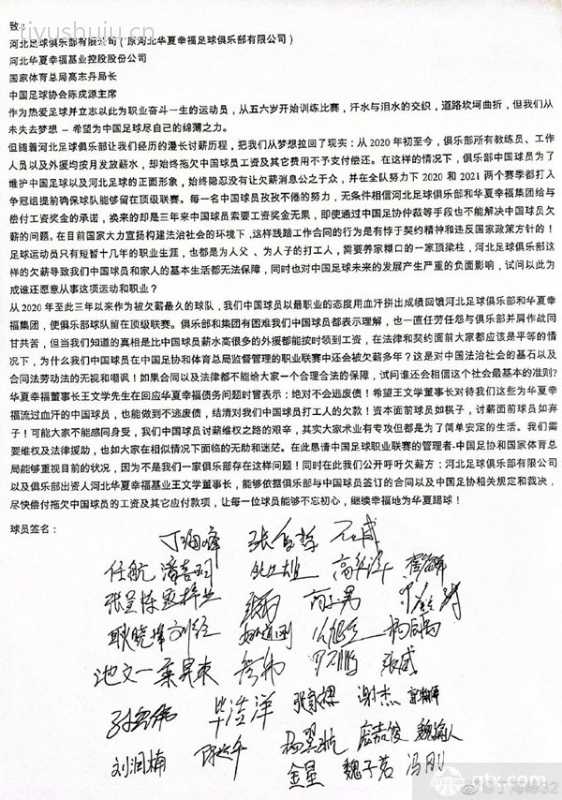 tiyushuju.cn
致:
河北足球俱乐部有限公司(原河北华夏幸福足球俱乐部有限公司)
河北华夏幸福基业控股股份公司
国家体育总局高志丹局长
中国足球协会陈戌源主席
作为热爱足球并立志以此为职业奋斗一生的运动员,从五六岁开始训练比赛,汗水与泪水的交织,道路坎坷曲折,但我们从
未失去梦想 – 希望为中国足球尽自己的绵薄之力。
但随着河北足球俱乐部让我们经历的漫长讨薪历程,把我们从梦想拉回了现实:从 2020 年初至今,俱乐部所有教练员、工作
人员以及外援均按月发放薪水,却始终拖欠中国球员工资及其它费用不予支付偿还。在这样的情况下,俱乐部中国球员为了
维护中国足球以及河北足球的正面形象,始终隐忍没有让欠薪消息公之于众,并在全队努力下 2020 和 2021 两个赛季都打入
争冠组提前确保球队能够留在顶级联赛。每一名中国球员孜孜不倦的努力,无条件相信河北足球俱乐部和华夏幸福集团给与
偿付工资奖金的承诺,换来的却是三年来中国球员索要工资奖金无果,即使通过中国足协仲裁等手段也不能解决中国球员欠
薪的问题。在目前国家大力宣扬构建法治社会的环境下,这样践踏工作合同的行为是有悖于契约精神和违反国家政策方针的!
足球运动员只有短暂十几年的职业生涯,也都是为人父 、为人子的打工人,需要养家糊口的一家顶梁柱,河北足球俱乐部这
样的欠薪导致我们中国球员和家人的基本生活都无法保障,同时也对中国足球未来的发展产生严重的负面影响,试问以此为
戒谁还愿意从事这项运动和职业?
从 2020 年至此三年以来作为被欠薪最久的球队,我们中国球员以最职业的态度用血汗拼出成绩回馈河北足球俱乐部和华夏幸
福集团,使俱乐部球队留在顶级联赛。俱乐部和集团有困难我们中国球员都表示理解,也一直任劳任怨与俱乐部并肩作战同
甘共苦,但当我们知道的真相是比中国球员薪水高很多的外援都能按时领到工资,在法律和契约面前大家都应该是平等的情
况下,为什么我们中国球员在中国足协和体育总局监督管理的职业联赛中还会被欠薪多年?这是对中国法治社会的基石以及
合同法劳动法的无视和嘲讽!如果合同以及法律都不能给大家一个合理合法的保障,试问谁还会相信这个社会最基本的准则?
华夏幸福董事长王文学先生在回应华夏幸福债务问题时曾表示:绝对不会逃废债!希望王文学董事长对待我们这些为华夏幸
福流过血汗的中国球员,也能做到不逃废债,结清对我们中国球员打工人的欠款!资本面前球员如棋子,讨薪面前球员如弃
子!可能大家不能感同身受,我们中国球员讨薪维权之路的艰辛,其实大家术业有专攻但都是为了简单安定的生活。我们需
要维权及法律援助,也如大家在相似情况下面临的无助和迷茫。在此恳请中国足球职业联赛的管理者-中国足协和国家体育总
局能够重视目前的状况,因为不是我们一家俱乐部存在这样问题!同时在此我们公开呼吁欠薪方:河北足球俱乐部有限公司
以及俱乐部出资人河北华夏幸福基业王文学董事长,能够依据俱乐部与中国球员签订的合同以及中国足协相关规定和裁决,
尽快偿付拖欠中国球员的工资及其它应付款项,让每一位球员能够不忘初心,继续幸福地为华夏踢球!
球员签名:
丁海峰
任航 潘喜明
张呈栋
耿晓峰 刘径 杨程
池文一 张威
毕津洋 谢杰
刘润楠 杨翼航 应嘉俊
金星 魏子茗 冯刚